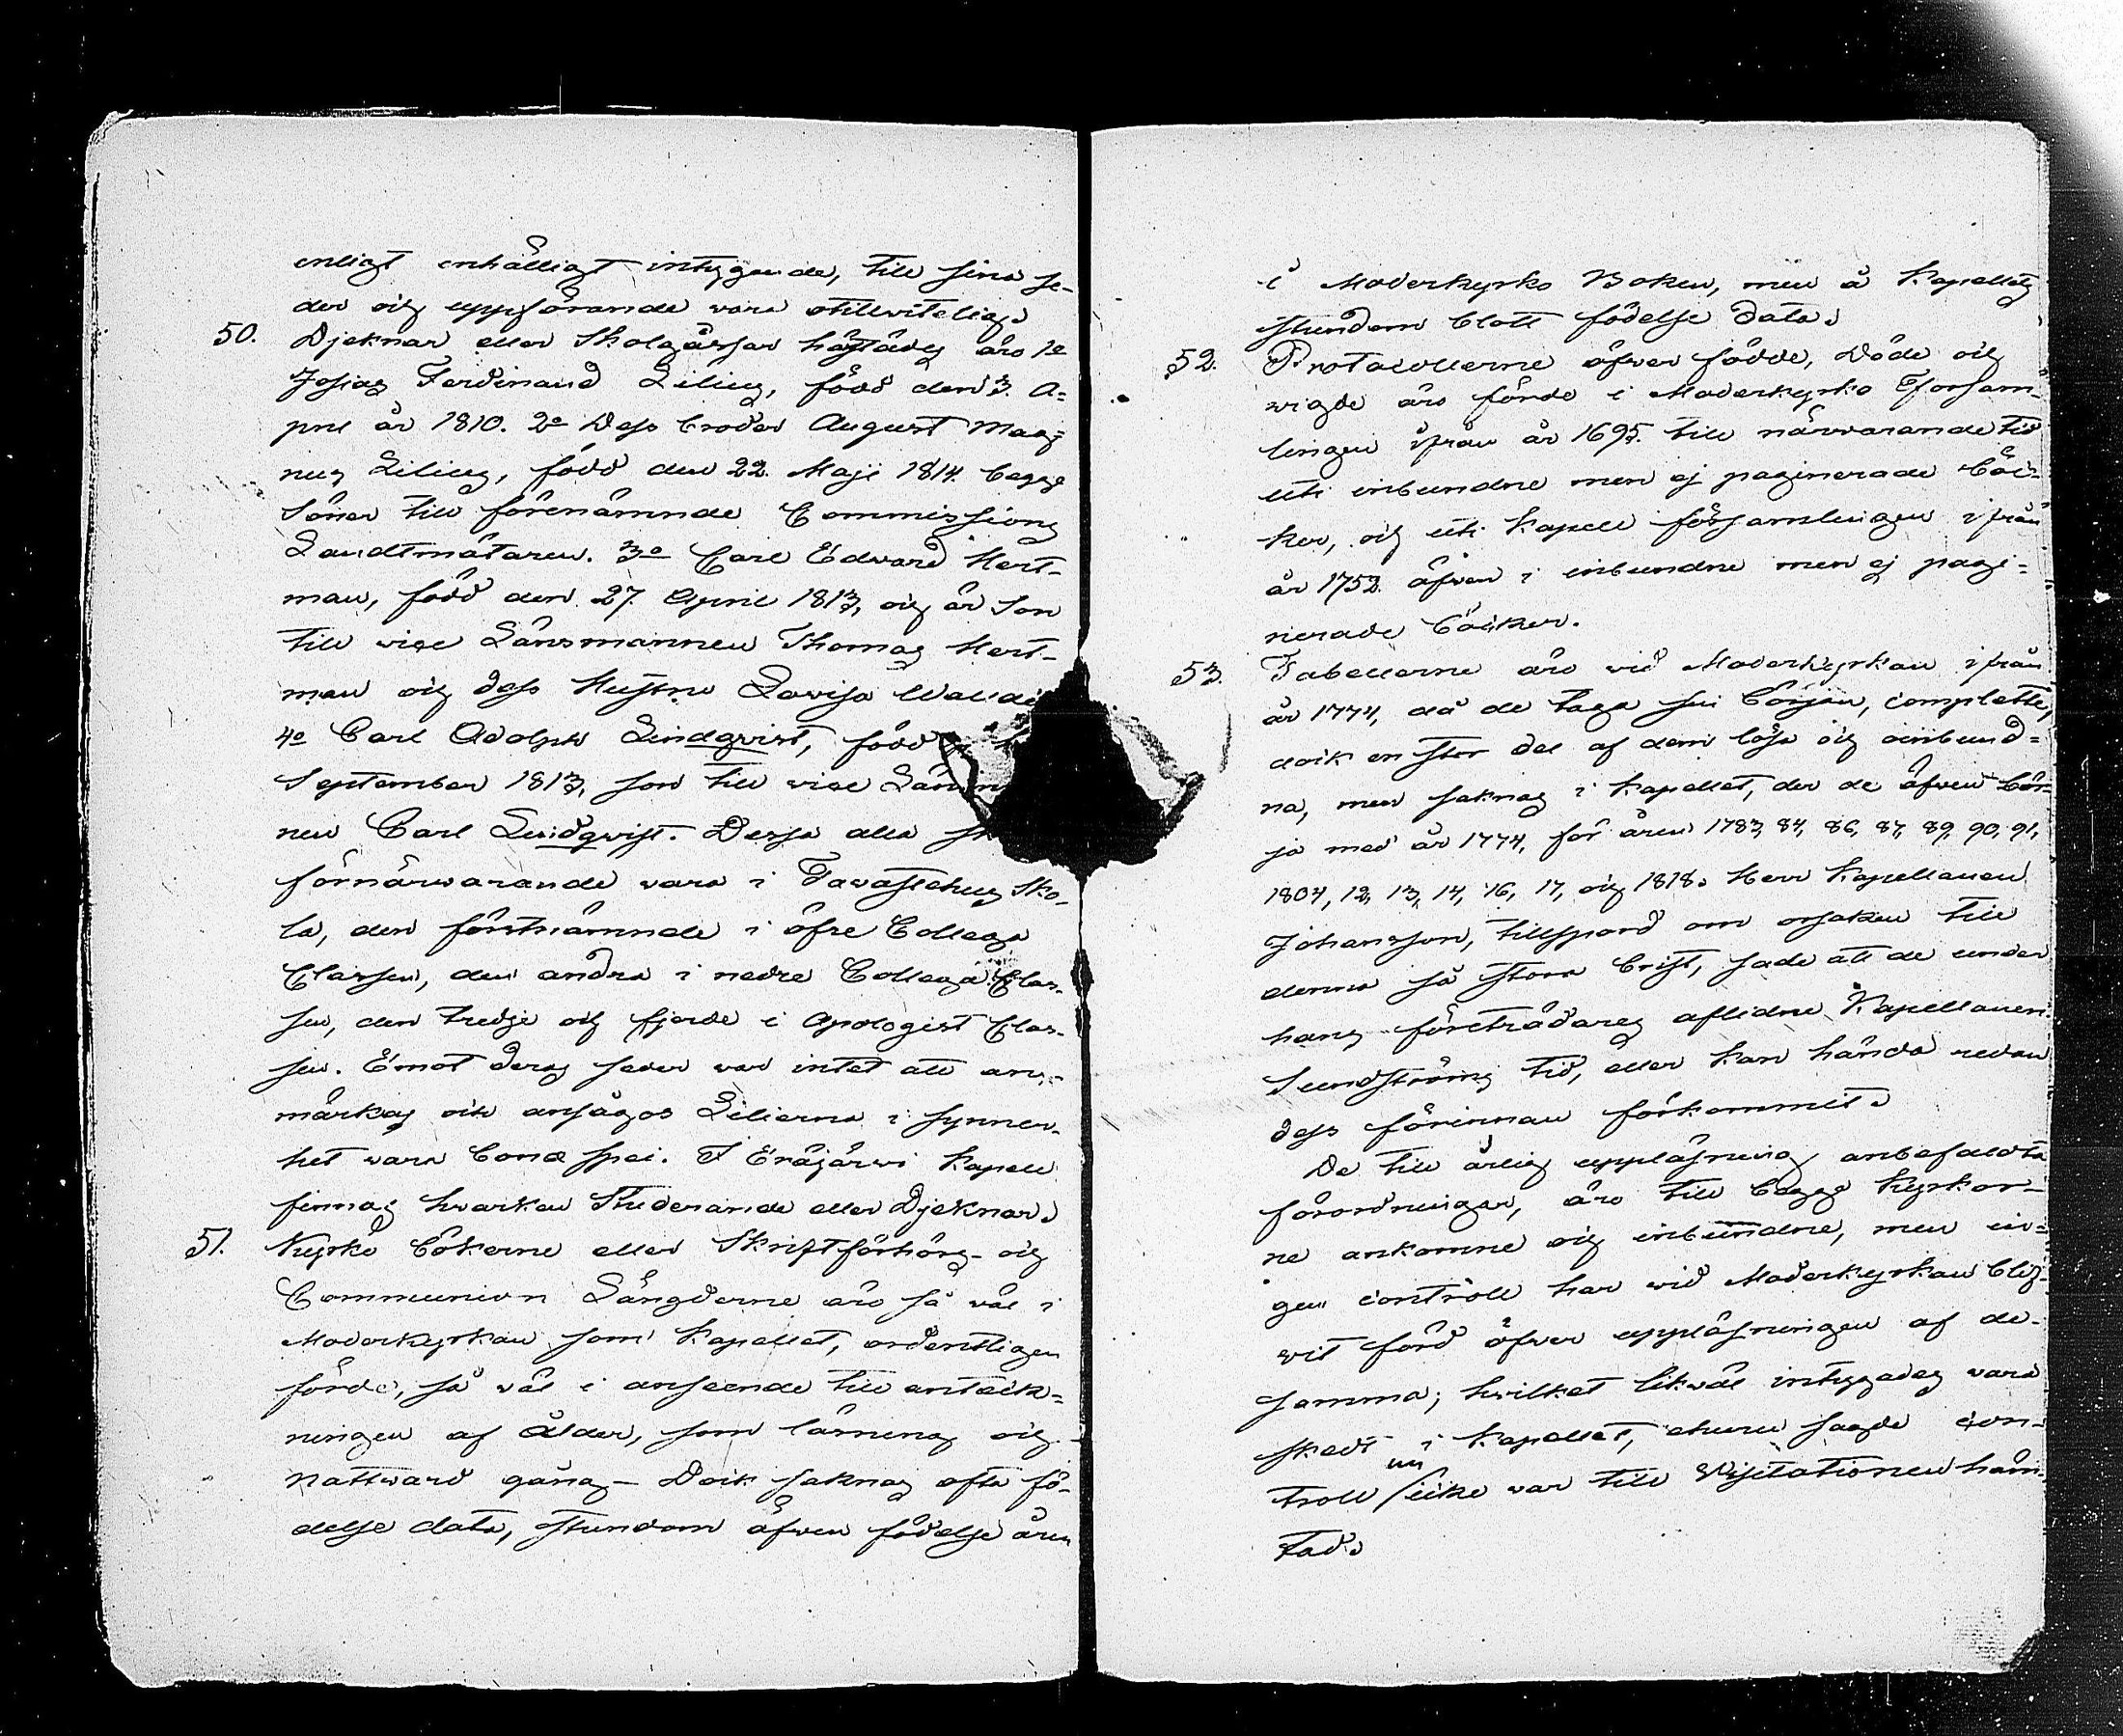 enligt enhälligt intygande, till sina se-
der och uppförande vara otillvitelige
50. Djeknar eller Skolgåssar härstädes äro 1o
Josias Ferdinand Lilius, född den 3. A=
pril år 1810. 2o Dess broder August Mag=
nus Lilius, född den 22. Maji 1814. begge
Söner till förenämnde Commissions
Landtmätaren. 3o Carl Edvard Hert-
man, född den 27. April 1813, och är Son
till vice Länsmannen Thomas Hert-
man och dess Hustru Lovisa
4o Carl Adolph Lindqvist, född
September 1813, son till vice
nen Carl Lindqvist. Dessa alla
förnärwarande vara i Tavastehus Sko-
la, den förstnämnde i öfre Collega
Classen, den andra i nedre Collega Clas-
sen, den tredje och fjerde i Apologist Clas-
sen. Emot deras seder var intet att an-
märkas och ansågos Lilierna i synner-
het vara bonæ spei. I Eräjärwi Kapell
finnas hvarken Studerande eller Djeknar.
51. Kyrko Böckerne eller Skriftförhörs- och
Communion Längderne äro så väl i
Moderkyrkan som Kapellet, ordentligen
förde, så väl i anseende till anteck=
ningen af Ålder, som läsning och
Nattward gång – Dock saknas ofta fö-
delse data, stundom äfven födelse åren
i Moderkyrko Boken, men å Kapellets
stundom blott födelse data.
52. Protocollerne öfver födde, Döde och
wigde äro förde i Moderkyrko Försam-
lingen ifrån år 1695. till närvarande tid
uti inbundne men ej paginerade böc-
ker, och uti Kapell församlingen ifrån
år 1752. äfven i inbundne men ej pagi=
nerade böcker.
53. Tabellerne äro vid Moderkyrkan ifrån
år 1774, då de taga sin början, complette,
dock en stor del af dem lösa och oinbund=
na, men saknas i Kapellet, der de äfven bör-
ja med år 1774, för åren 1783, 84, 86, 87, 89, 90, 91,
1804, 12, 13, 14, 16, 17, och 1818. Herr Kapellanen
Johansson, tillspord om orsaken till
denna så stora brist, sade att de under
hans företrädares aflidne Kapellanen
Sundströms tid, eller kan hända redan
dess förinnan förkommit.
De till årlig uppläsning anbefaldta
förordningar, äro till begge Kyrkor-
ne ankomne och inbundne, men in=
gen controll har vid Moderkyrkan blif-
vit förd öfver uppläsningen af de-
samma; hvilket likväl intygades vara
skedt i Kapellet, ehuru sagde con-
troll nu icke var till Visitationen häm-
tad.